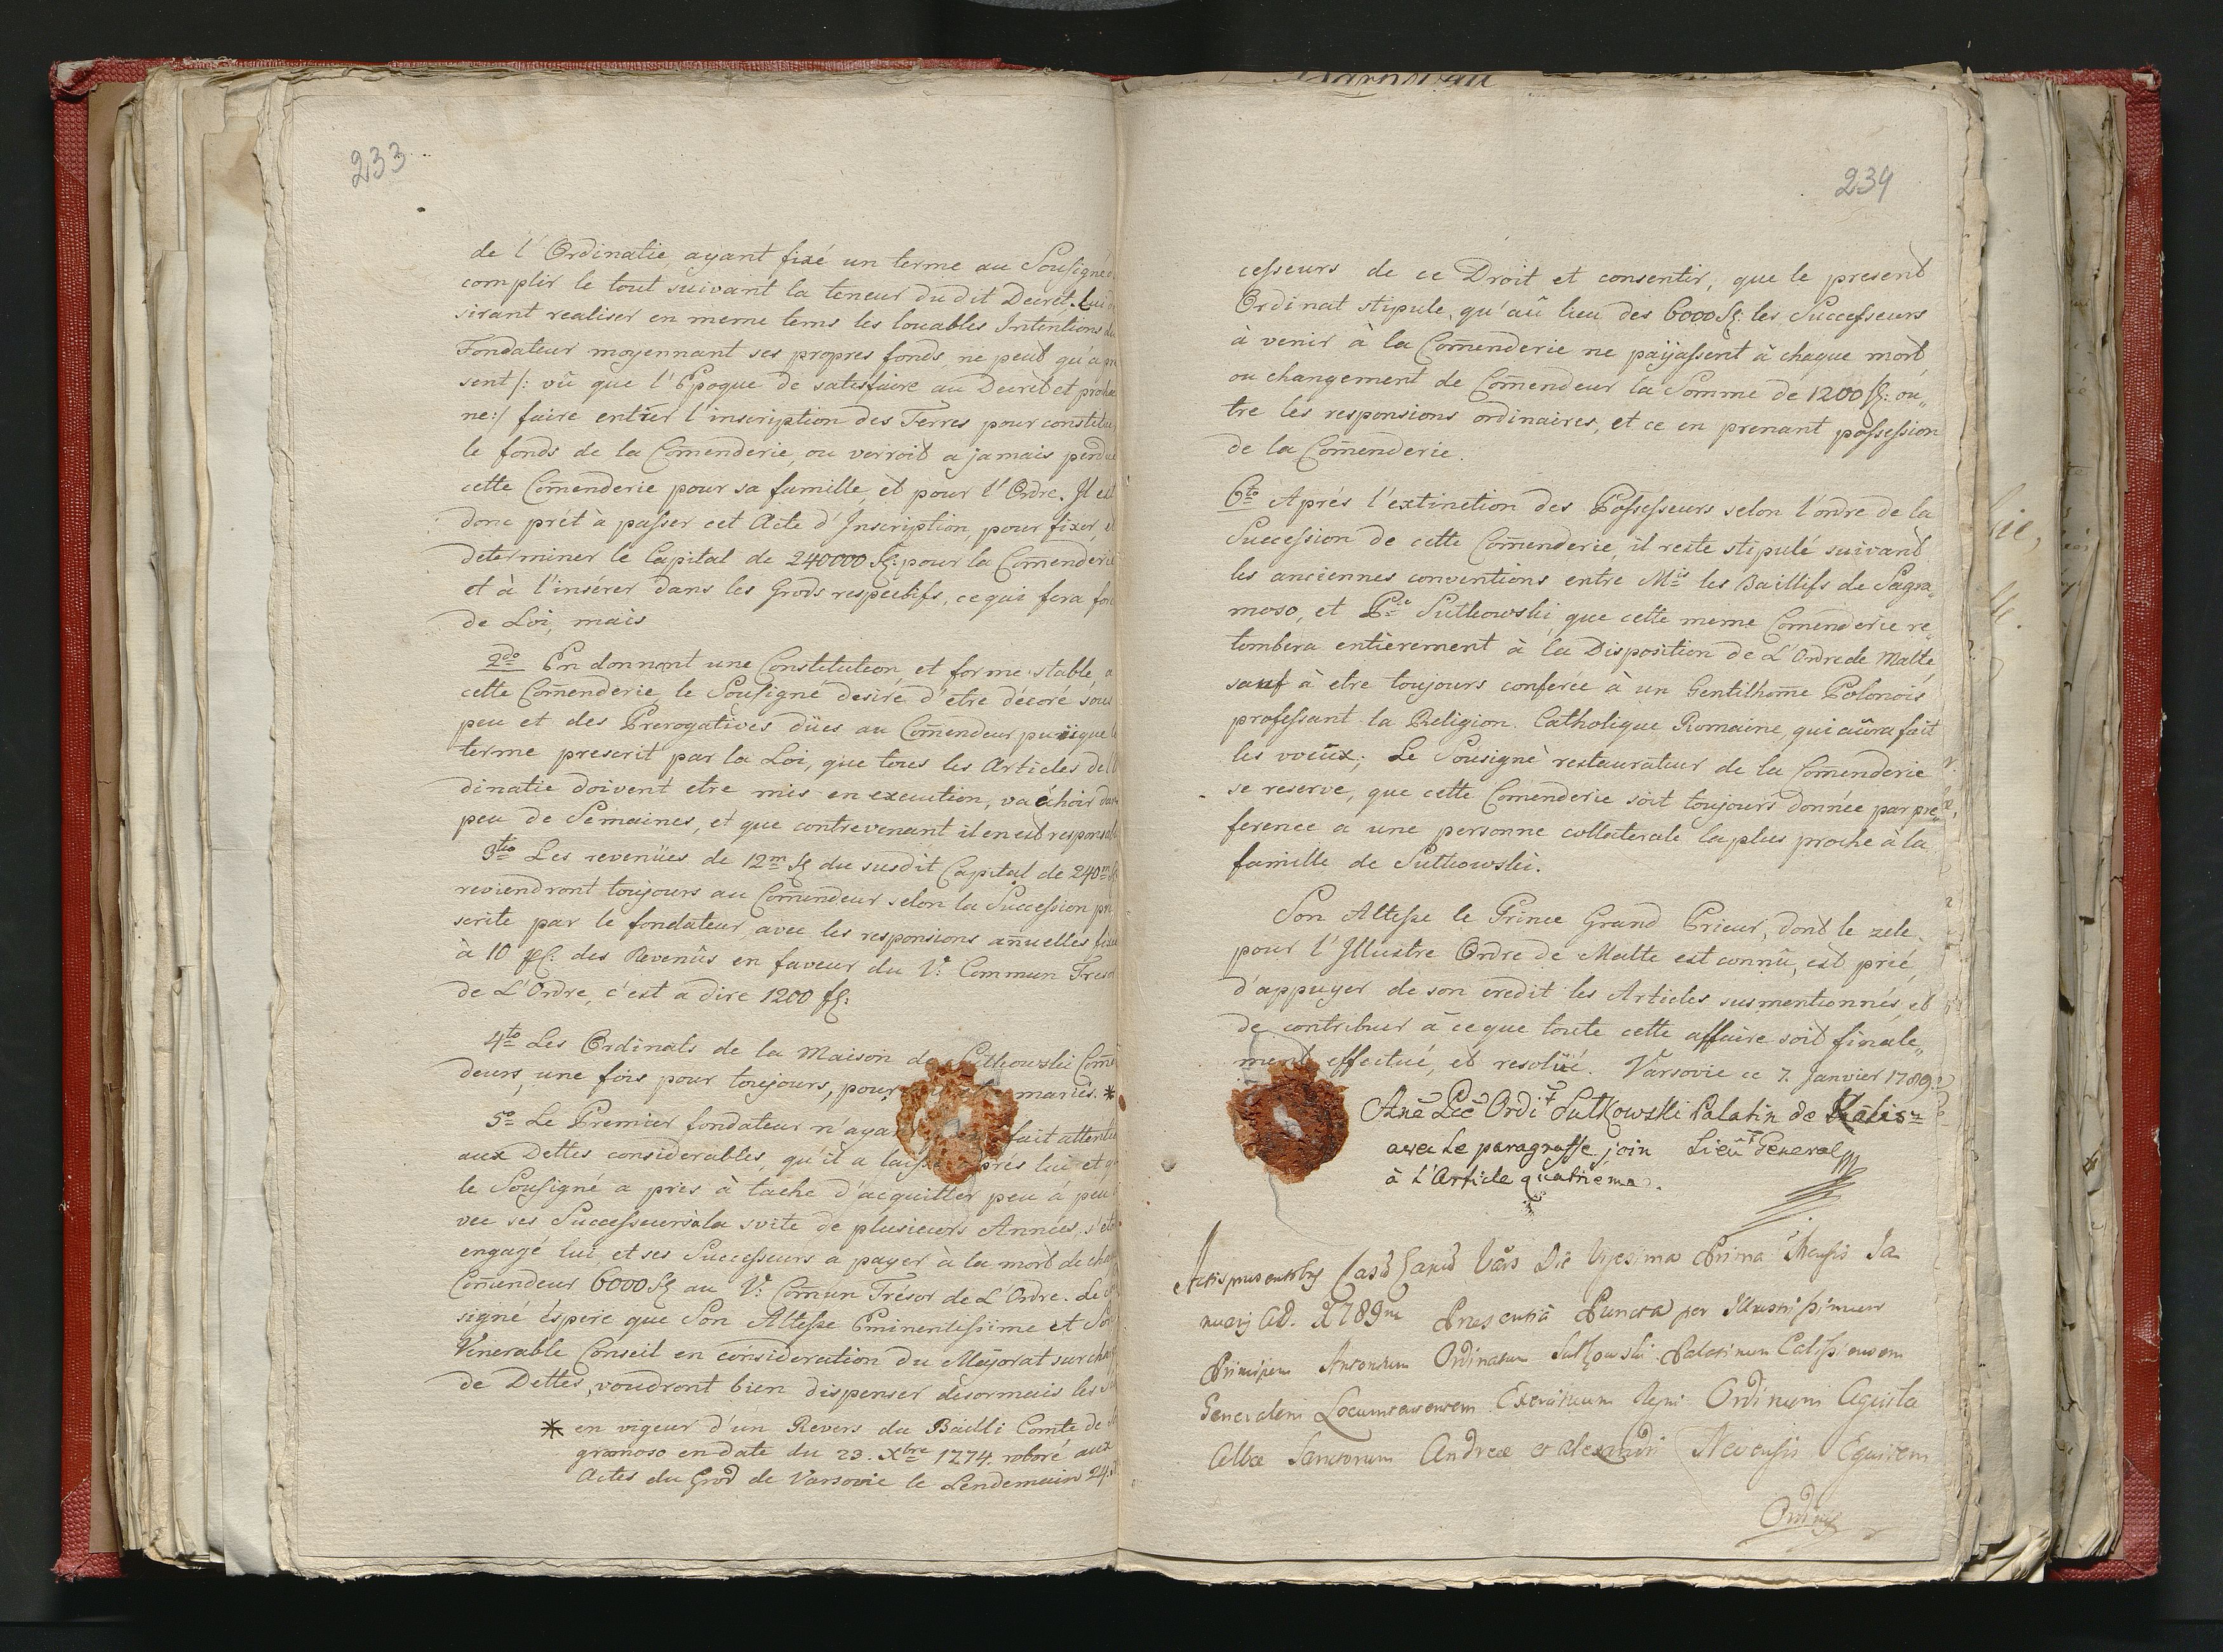 233
de l'Ordinatie, ayant fixé un terme au Sousigné
complir le tout suivant la teneur du dit Decret, Lui
sirant realiser en meme tems les louables Intentions du
Fondateur moyennant ses propres fonds, ne peut qu'a pre
sent /: vû que l'Epoque de satisfaire au Decret et prochai
ne:/ faire entrer l'inscription des Terres pour constituer
le fonds de la Comenderie, ou verroit a jamais perdue
cette Comenderie pour sa famille, et pour l'Ordre. Il est
donc prét à passer cet Acte d'Inscription, pour fixer, et
determiner le Capital de 240000 fl: pour la Comenderie
et à l'insérer dans les Grods respectifs, ce qui fera for
de Loi, mais
2do En donnant une Constitution et forme stable, a
cette Comenderie, le Sousigné desire d'etre décoré sous
peu et des Prerogatives dües au Comendeur puisque le
terme prescrit par la Loi, que tous les Articles de l'
dinatie doivent etre mis en execution, va échoir dans
peu de Semaines, et que contrevenant il en est responsa
3tio Les revenües de 12m fl du susdit Capital de 240m fl
reviendront toujours au Comendeur selon la Succession pre
scrite par le fondateur, avec les responsions anuelles fixé
à 10 pC: des Revenûs en faveur du V: Commun Treso
de L'Ordre, c'est a dire 1200 fl:
4to Les Ordinats de la Maison de Sutkowski Come
deurs, une fois pour toujours, pour mariés. *
5o Le Premier fondateur n'ayan fait attenti
aux Dettes considerables, qu'il a laissé après lui et q
le Sousigné a pris à tache d'acquitter peu à peu
vec ses Successeurs à la suite de plusieurs Années, s'et
engagé lui, et ses Successeurs a payer à la mort de cha
Comendeur 6000 fl au V: Comun Trésor de L'Ordre. Le
signé éspere que Son Altesse Eminentissime et So
Venerable Conseil en consideration du Majorat surcha
de Dettes, voudront bien dispenser desormais les
* en vigeur d'un Revers du Bailli Comte de
gramoso en date du 23. Xbre 1774. roboré aux
Actes du Grod de Varsovie le Lendemain 24.
234
cesseurs de ce Droit et consentir, que le present
Ordinat stipule, qu'aû lieu des 6000 fl: les Successeurs
à venir à la Comenderie ne payassent à chaque mort
ou changement de Comendeur la Somme de 1200 fl: ou„
tre les responsions ordinaires, et ce en prenant possession
de la Comenderie.
6to Aprés l'extinction des Possesseurs selon l'ordre de la
Succession de cette Comenderie, il reste stipulé suivant
les anciennes conventions entre Mrs les Baillifs de Sagra„
moso, et Pce Sutkowski, que cette meme Comenderie re„
tombera entièrement à la Disposition de L'Ordre de Malte
sauf à etre toujours conferée à un Gentilhome Polonois
professant la Religion Catholique Romaine, qui aûra fait
les voeux; Le Sousigné restaurateur de la Comenderie
se reserve, que cette Comenderie soit toujours donnée par pre„
ference a une personne collaterale la plus proche à la
famille de Sutkowski.
Son Altesse le Prince Grand Prieur, dont le zele
pour l'Illustre Ordre de Malte est connû, est prié,
d'appuyer de son credit les Articles susmentionnés, et
de contribuer à ce que toute cette affaire soit finale„
ment effectué, et resolué. Varsovie ce 7. Janvier 1789.
Ordt Sutkowski Palatin de Kalisz
avec Le paragraffe join Lieut General
à L'Article quatriema.
Actis presentibus Vars Die Vigesima Prima Mensis Ja
nuarij AD. 1789no Presentia Puncta per Illustrissimum
Principem Antonium Ordinatum Sutkowski Palatinum Calissiensem
Generalem Locumtenentem Exercituum Regni Ordinum Aquila
Alba Sanctorum Andrea et Alexandri Nevensis Equitem
Ordinis